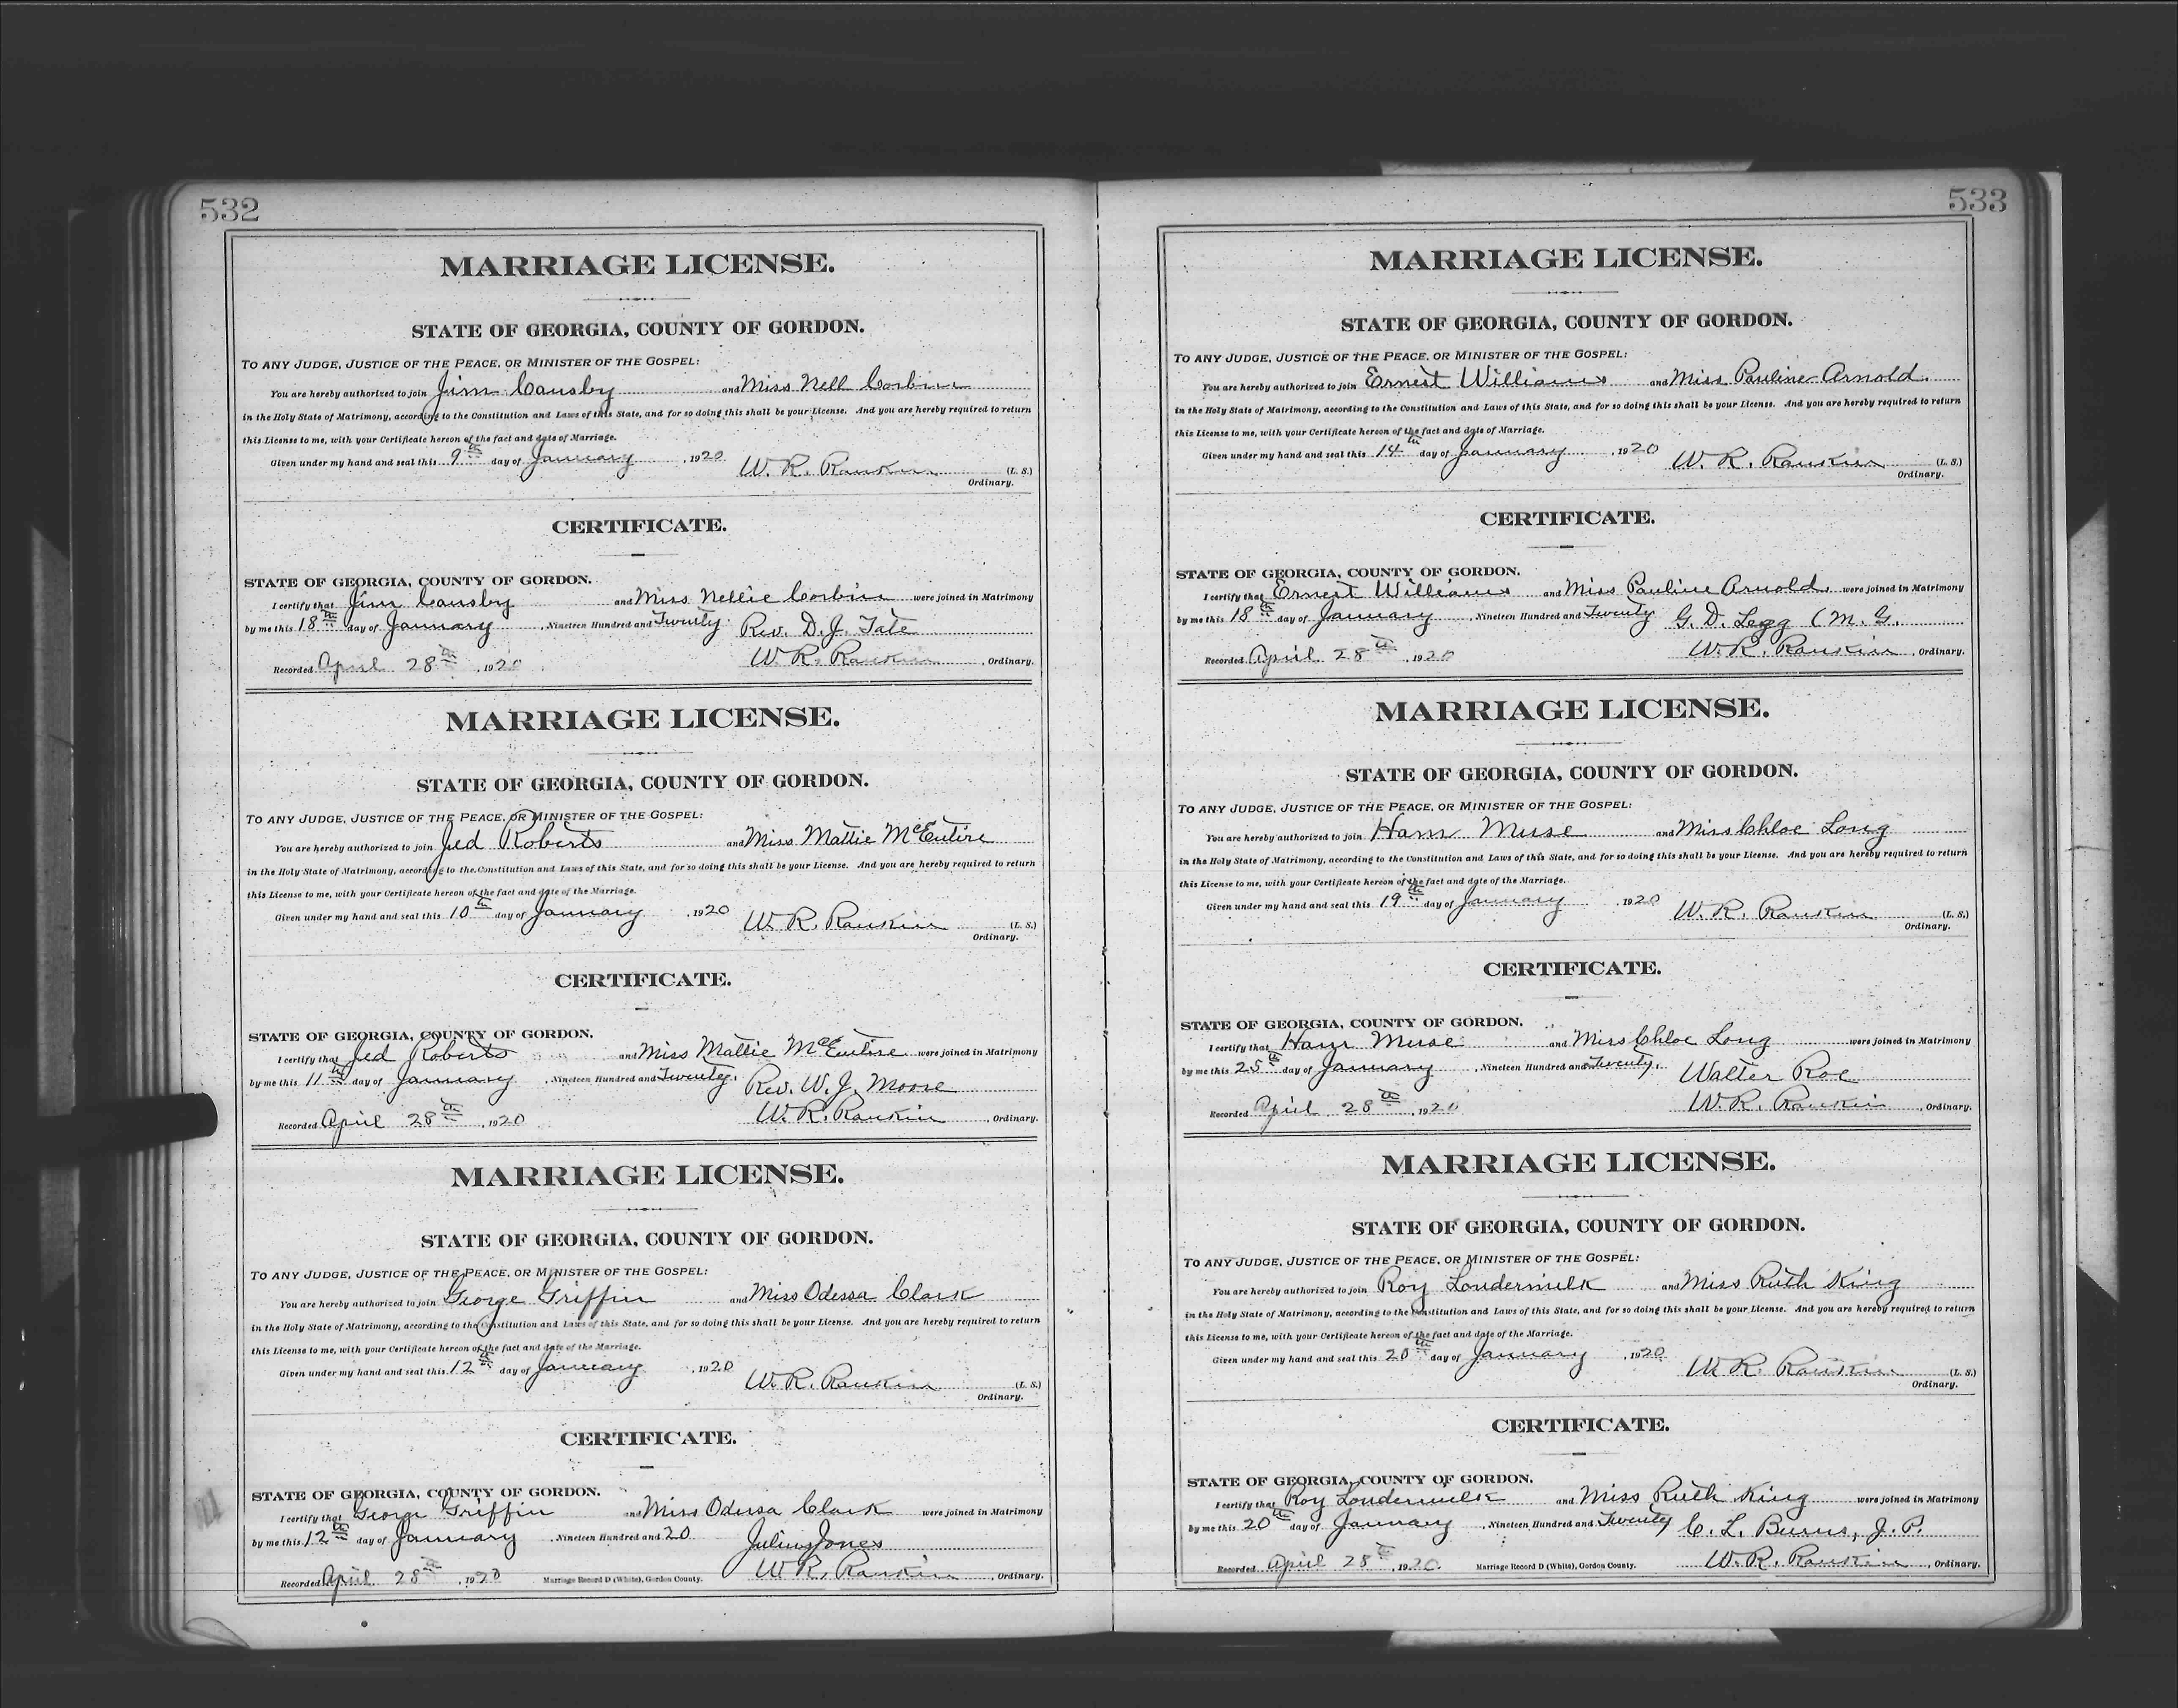 532
MARRIAGE LICENSE.
STATE OF GEORGIA, COUNTY OF GORDON.
TO ANY JUDGE, JUSTICE OF THE PEACE, OR MINISTER OF THE GOSPEL:
You are hereby authorized to join Jim Cansby and Miss Nell Corbin
in the Holy State of Matrimony, according to the Constitution and Laws of this State, and for so doing this shall be your License. And you are hereby required to return
this License to me, with your Certificate hereon of the fact and date of Marriage.
Given under my hand and seal this 9th day of January, 1920 W. R. Rankin (L. S.)
Ordinary.
CERTIFICATE.
STATE OF GEORGIA, COUNTY OF GORDON.
I certify that Jim Cansby and Miss Nellie Corbin were joined in Matrimony
by me this 18th day of January, Nineteen Hundred and Twenty. Rev. D. J. Tate
Recorded April 28th, 1920 W. R. Rankin, Ordinary.
MARRIAGE LICENSE.
STATE OF GEORGIA, COUNTY OF GORDON.
TO ANY JUDGE, JUSTICE OF THE PEACE, OR MINISTER OF THE GOSPEL:
You are hereby authorized to join Jed Roberts and Miss Mattie McEntire
in the Holy State of Matrimony, according to the Constitution and Laws of this State, and for so doing this shall be your License. And you are hereby required to return
this License to me, with your Certificate hereon of the fact and date of the Marriage.
Given under my hand and seal this 10th day of January, 1920 W. R. Rankin (L. S.)
Ordinary.
CERTIFICATE.
STATE OF GEORGIA, COUNTY OF GORDON.
I certify that Jed Roberts and Miss Mattie McEntire were joined in Matrimony
by me this 11th day of January, Nineteen Hundred and Twenty. Rev. W. J. Moore
Recorded April 28th, 1920 W. R. Rankin, Ordinary.
MARRIAGE LICENSE.
STATE OF GEORGIA, COUNTY OF GORDON.
TO ANY JUDGE, JUSTICE OF THE PEACE, OR MINISTER OF THE GOSPEL:
You are hereby authorized to join George Griffin and Miss Odessa Clark
in the Holy State of Matrimony, according to the Constitution and Laws of this State, and for so doing this shall be your License. And you are hereby required to return
this License to me, with your Certificate hereon of the fact and date of the Marriage.
Given under my hand and seal this 12th day of January, 1920 W. R. Rankin (L. S.)
Ordinary.
CERTIFICATE.
STATE OF GEORGIA, COUNTY OF GORDON.
I certify that George Griffin and Miss Odessa Clark were joined in Matrimony
by me this 12th day of January, Nineteen Hundred and 20 Julius Jones
Recorded April 28th, 1920 Marriage Record D (White), Gordon County. W. R. Rankin, Ordinary.
533
MARRIAGE LICENSE.
STATE OF GEORGIA, COUNTY OF GORDON.
TO ANY JUDGE, JUSTICE OF THE PEACE, OR MINISTER OF THE GOSPEL:
You are hereby authorized to join Ernest Williams and Miss Pauline Arnold.
in the Holy State of Matrimony, according to the Constitution and Laws of this State, and for so doing this shall be your License. And you are hereby required to return
this License to me, with your Certificate hereon of the fact and date of Marriage.
Given under my hand and seal this 14th day of January, 1920 W. R. Rankin (L. S.)
Ordinary.
CERTIFICATE.
STATE OF GEORGIA, COUNTY OF GORDON.
I certify that Ernest Williams and Miss Pauline Arnold were joined in Matrimony
by me this 18th day of January, Nineteen Hundred and Twenty G. D. Legg (M. G.
Recorded April 28th, 1920 W. R. Rankin, Ordinary.
MARRIAGE LICENSE.
STATE OF GEORGIA, COUNTY OF GORDON.
TO ANY JUDGE, JUSTICE OF THE PEACE, OR MINISTER OF THE GOSPEL:
You are hereby authorized to join Ham Muse and Miss Chloe Long
in the Holy State of Matrimony, according to the Constitution and Laws of this State, and for so doing this shall be your License. And you are hereby required to return
this License to me, with your Certificate hereon of the fact and date of the Marriage.
Given under my hand and seal this 19th day of January, 1920 W. R. Rankin (L. S.)
Ordinary.
CERTIFICATE.
STATE OF GEORGIA, COUNTY OF GORDON.
I certify that Ham Muse and Miss Chloe Long were joined in Matrimony
by me this 25th day of January, Nineteen Hundred and Twenty. Walter Roe
Recorded April 28th, 1920 W. R. Rankin, Ordinary.
MARRIAGE LICENSE.
STATE OF GEORGIA, COUNTY OF GORDON.
TO ANY JUDGE, JUSTICE OF THE PEACE, OR MINISTER OF THE GOSPEL:
You are hereby authorized to join Roy Loudermilk and Miss Ruth King
in the Holy State of Matrimony, according to the Constitution and Laws of this State, and for so doing this shall be your License. And you are hereby required to return
this License to me, with your Certificate hereon of the fact and date of the Marriage.
Given under my hand and seal this 20th day of January, 1920 W. R. Rankin (L. S.)
Ordinary.
CERTIFICATE.
STATE OF GEORGIA, COUNTY OF GORDON.
I certify that Roy Loudermilk and Miss Ruth King were joined in Matrimony
by me this 20th day of January, Nineteen Hundred and Twenty C. L. Burns, J. P.
Recorded April 28th, 1920. Marriage Record D (White), Gordon County. W. R. Rankin, Ordinary.